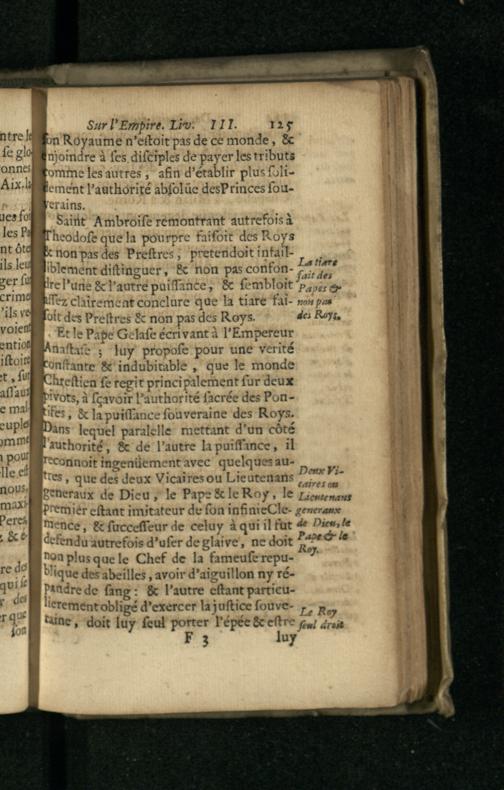 Sur l'Empire. Liv. III. 125
son Royaume n'estoit pas de ce monde, &
enjoindre à ses disciples de payer les tributs
comme les autres, afin d'établir plus soli-
dement l'authorité absolüe des Princes sou-
verains.
Saint Ambroise remontrant autrefois à
Theodose que la pourpre faisoit des Roys
& non pas des Prestres, pretendoit infail-
liblement distinguer, & non pas confon-
dre l'une & l'autre puissance, & sembloit
assez clairement conclure que la tiare fai-
soit des Prestres & non pas des Roys.
La tiare
fait des
Papes &
non pas
des Roys.
Et le Pape Gelase écrivant à l'Empereur
Anastase; luy propose pour une verité
constante & indubitable, que le monde
Chrestien se regit principalement sur deux
pivots, à sçavoir l'authorité sacrée des Pon-
tifes, & la puissance souveraine des Roys.
Dans lequel paralelle mettant d'un côté
l'authorité, & de l'autre la puissance, il
reconnoit ingenüement avec quelques au-
tres, que des deux Vicaires ou Lieutenans
generaux de Dieu, le Pape & le Roy, le
premier estant imitateur de son infinie Cle-
mence, & successeur de celuy à qui il fut
defendu autrefois d'user de glaive, ne doit
non plus que le Chef de la fameuse repu-
blique des abeilles, avoir d'aiguillon ny ré-
pandre de sang: & l'autre estant particu-
lierement obligé d'exercer la justice souve-
raine, doit luy seul porter l'épée & estre
Deux Vi-
caires ou
Lieutenans
generaux
de Dieu, le
Pape & le
Roy.
Le Roy
seul droit
F 3 luy